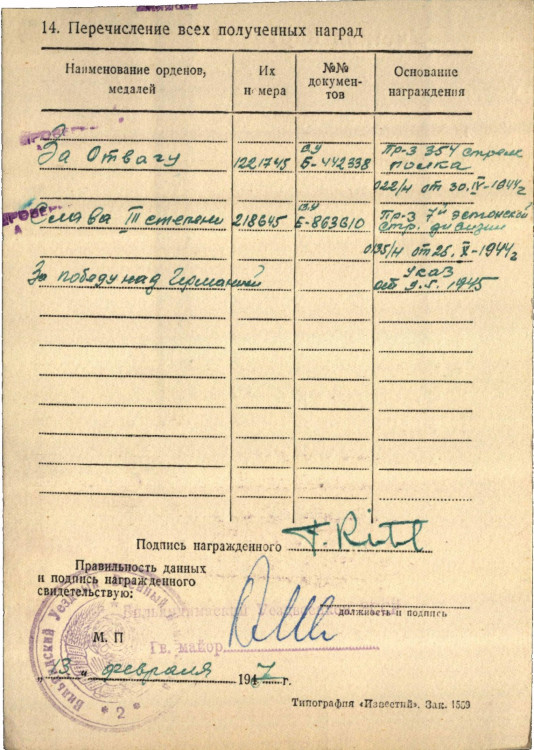 14. Перечисление всех полученных наград
Наименование орденов, медалей
Их номера
№№ документов
Основание награждения
За Отвагу 1221745 ВУ Б-442338 Пр-з 354 стрелк полка
022/н от 30.IV-1944г
Слава III степени 218645 ВУ Б-863610 Пр-з 7й эстонской стр. дивизии
085/н от 26.X-1944г
За победу над Германией Указ от 9.5.1945
Подпись награжденного
Правильность данных
и подпись награжденного
свидетельствую:
должность и подпись
М. П
Гв. майор
„13„ февраля 1947 г.
* 2 *
Типография «Известий». Зак. 1559